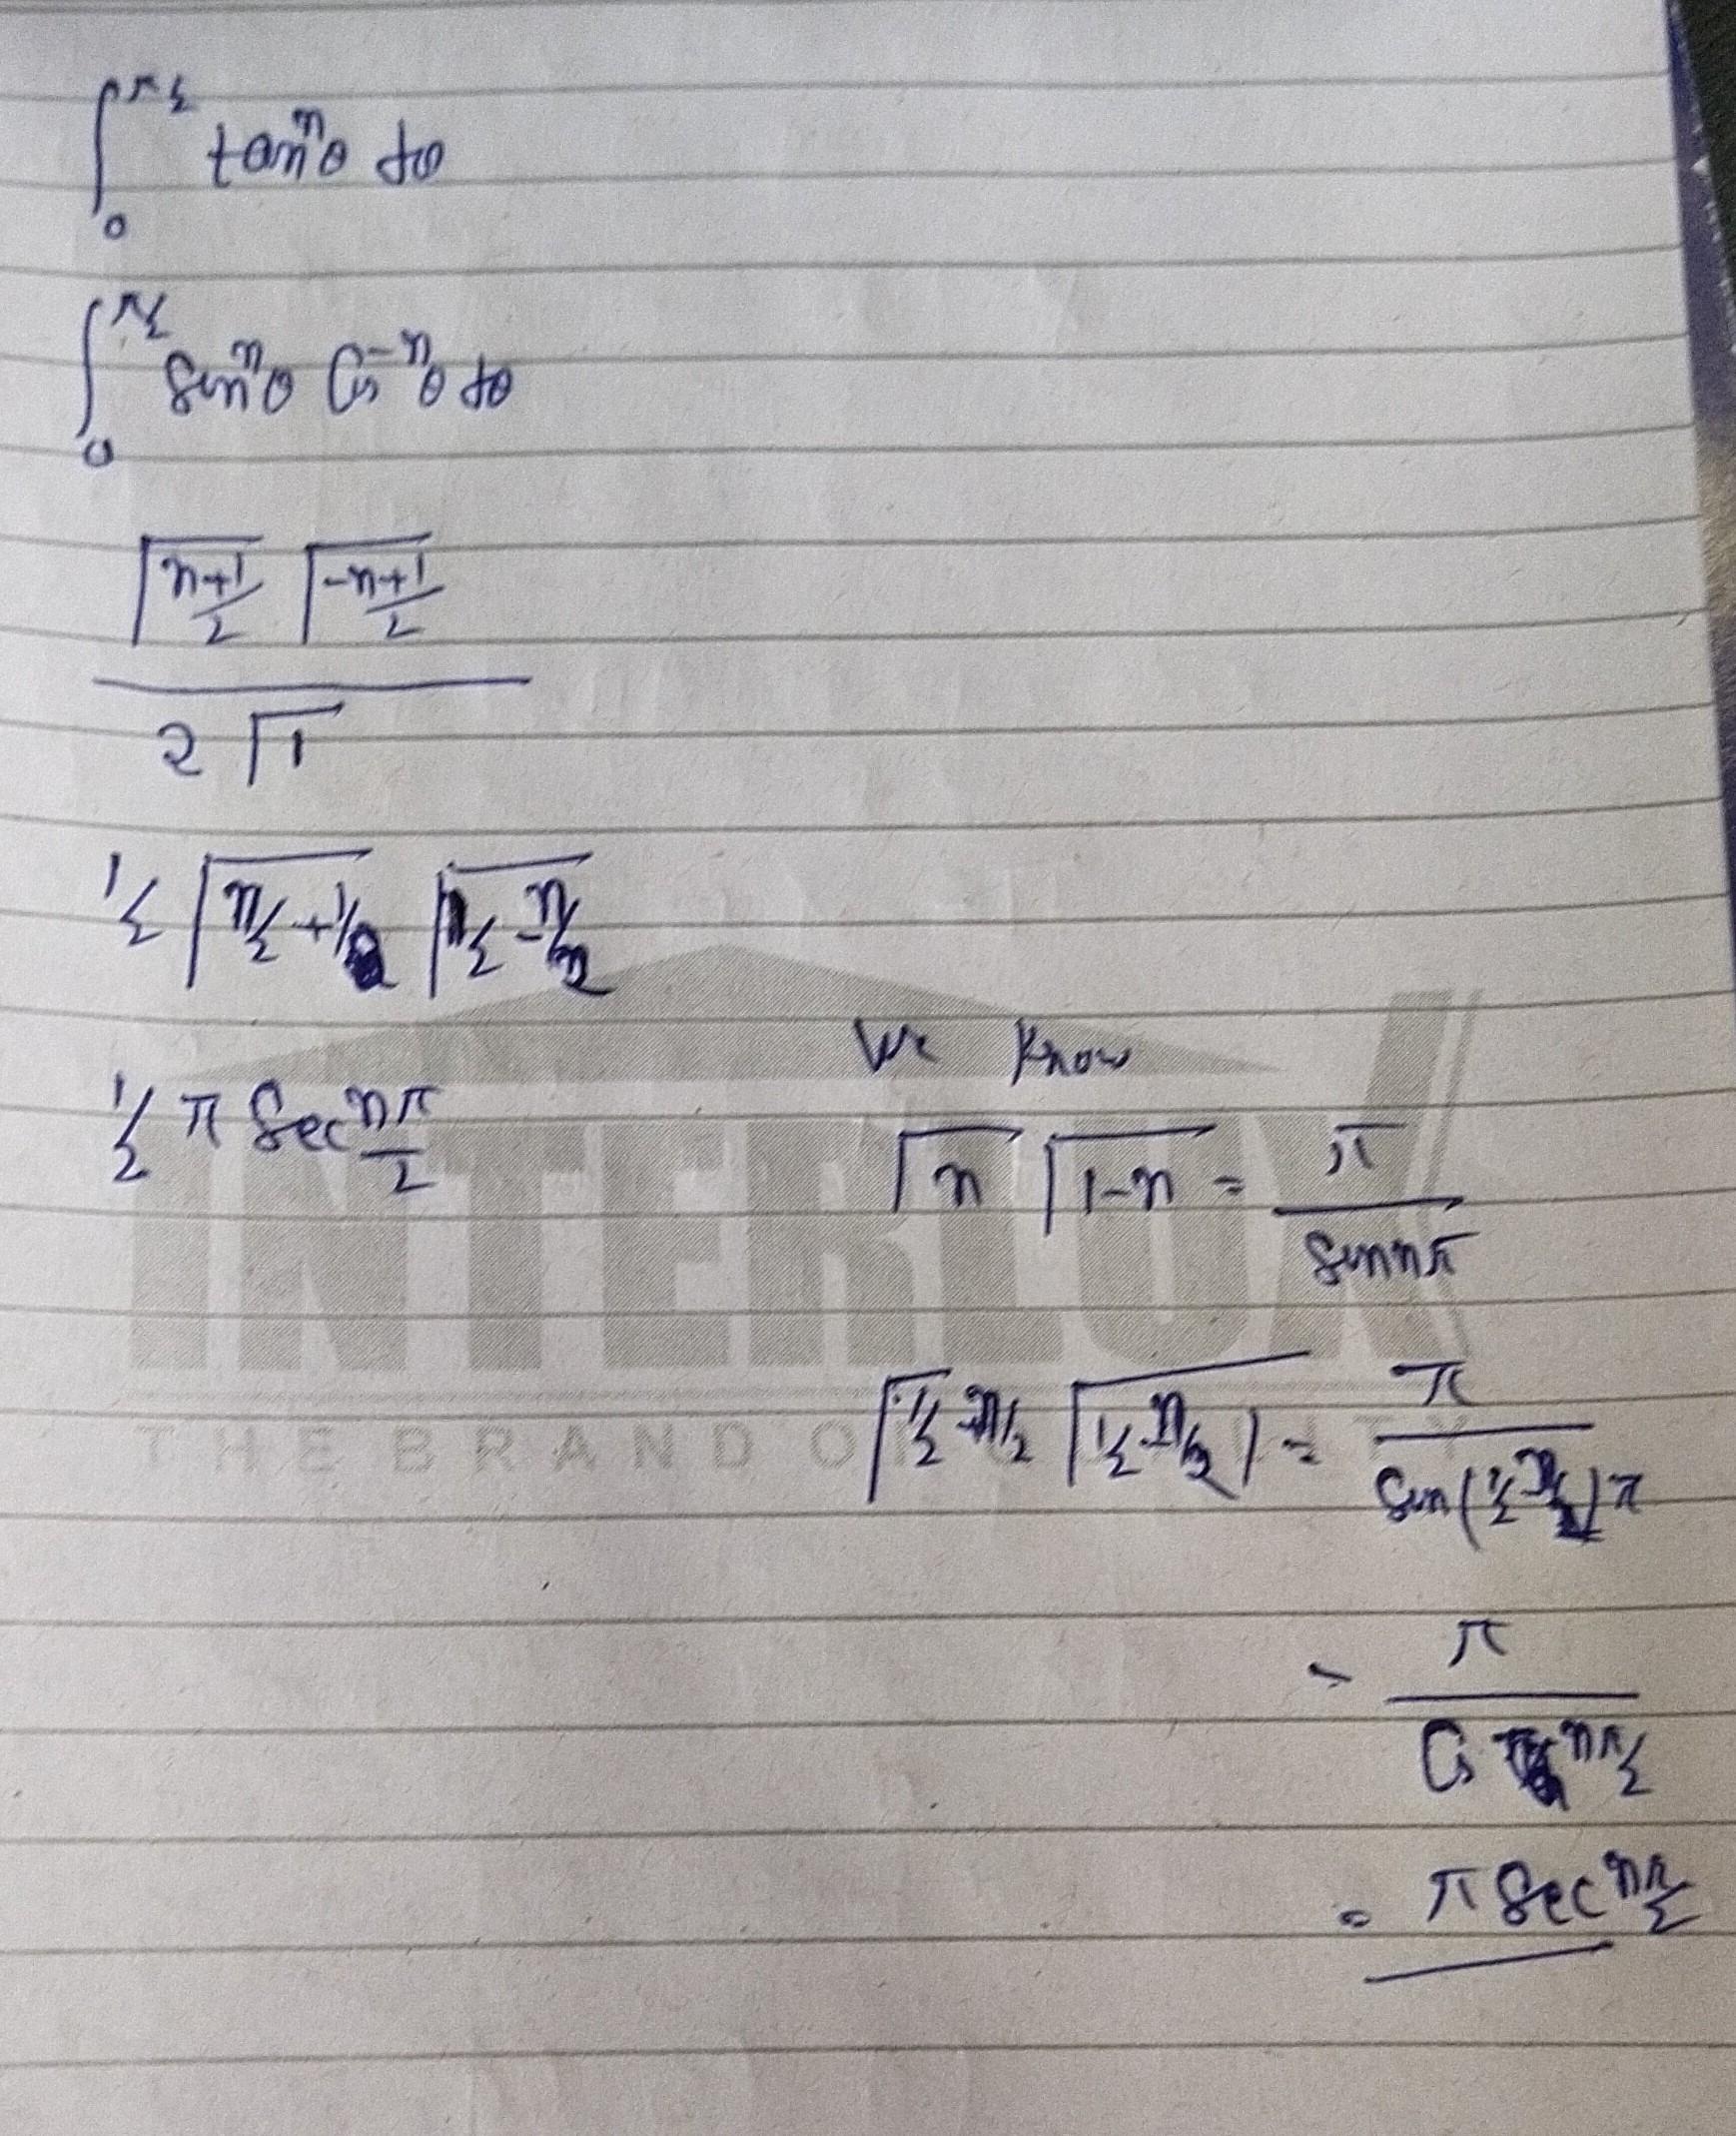 ∫₀^{π/2} tanⁿθ dθ
∫₀^{π/2} sinⁿθ cos⁻ⁿθ dθ
Γ(n+1/2) Γ(-n+1/2)
2 Γ1
1/2 Γ(n/2+1/2) Γ(1/2-n/2)
We know
1/2 π sec nπ/2
Γn Γ1-n = π/sin nπ
Γ1/2-n/2 Γ(1/2-n/2) = π/sin(1/2-n/2)π
= π/cos nπ/2
= π sec nπ/2
INTERLUX
THE BRAND OF